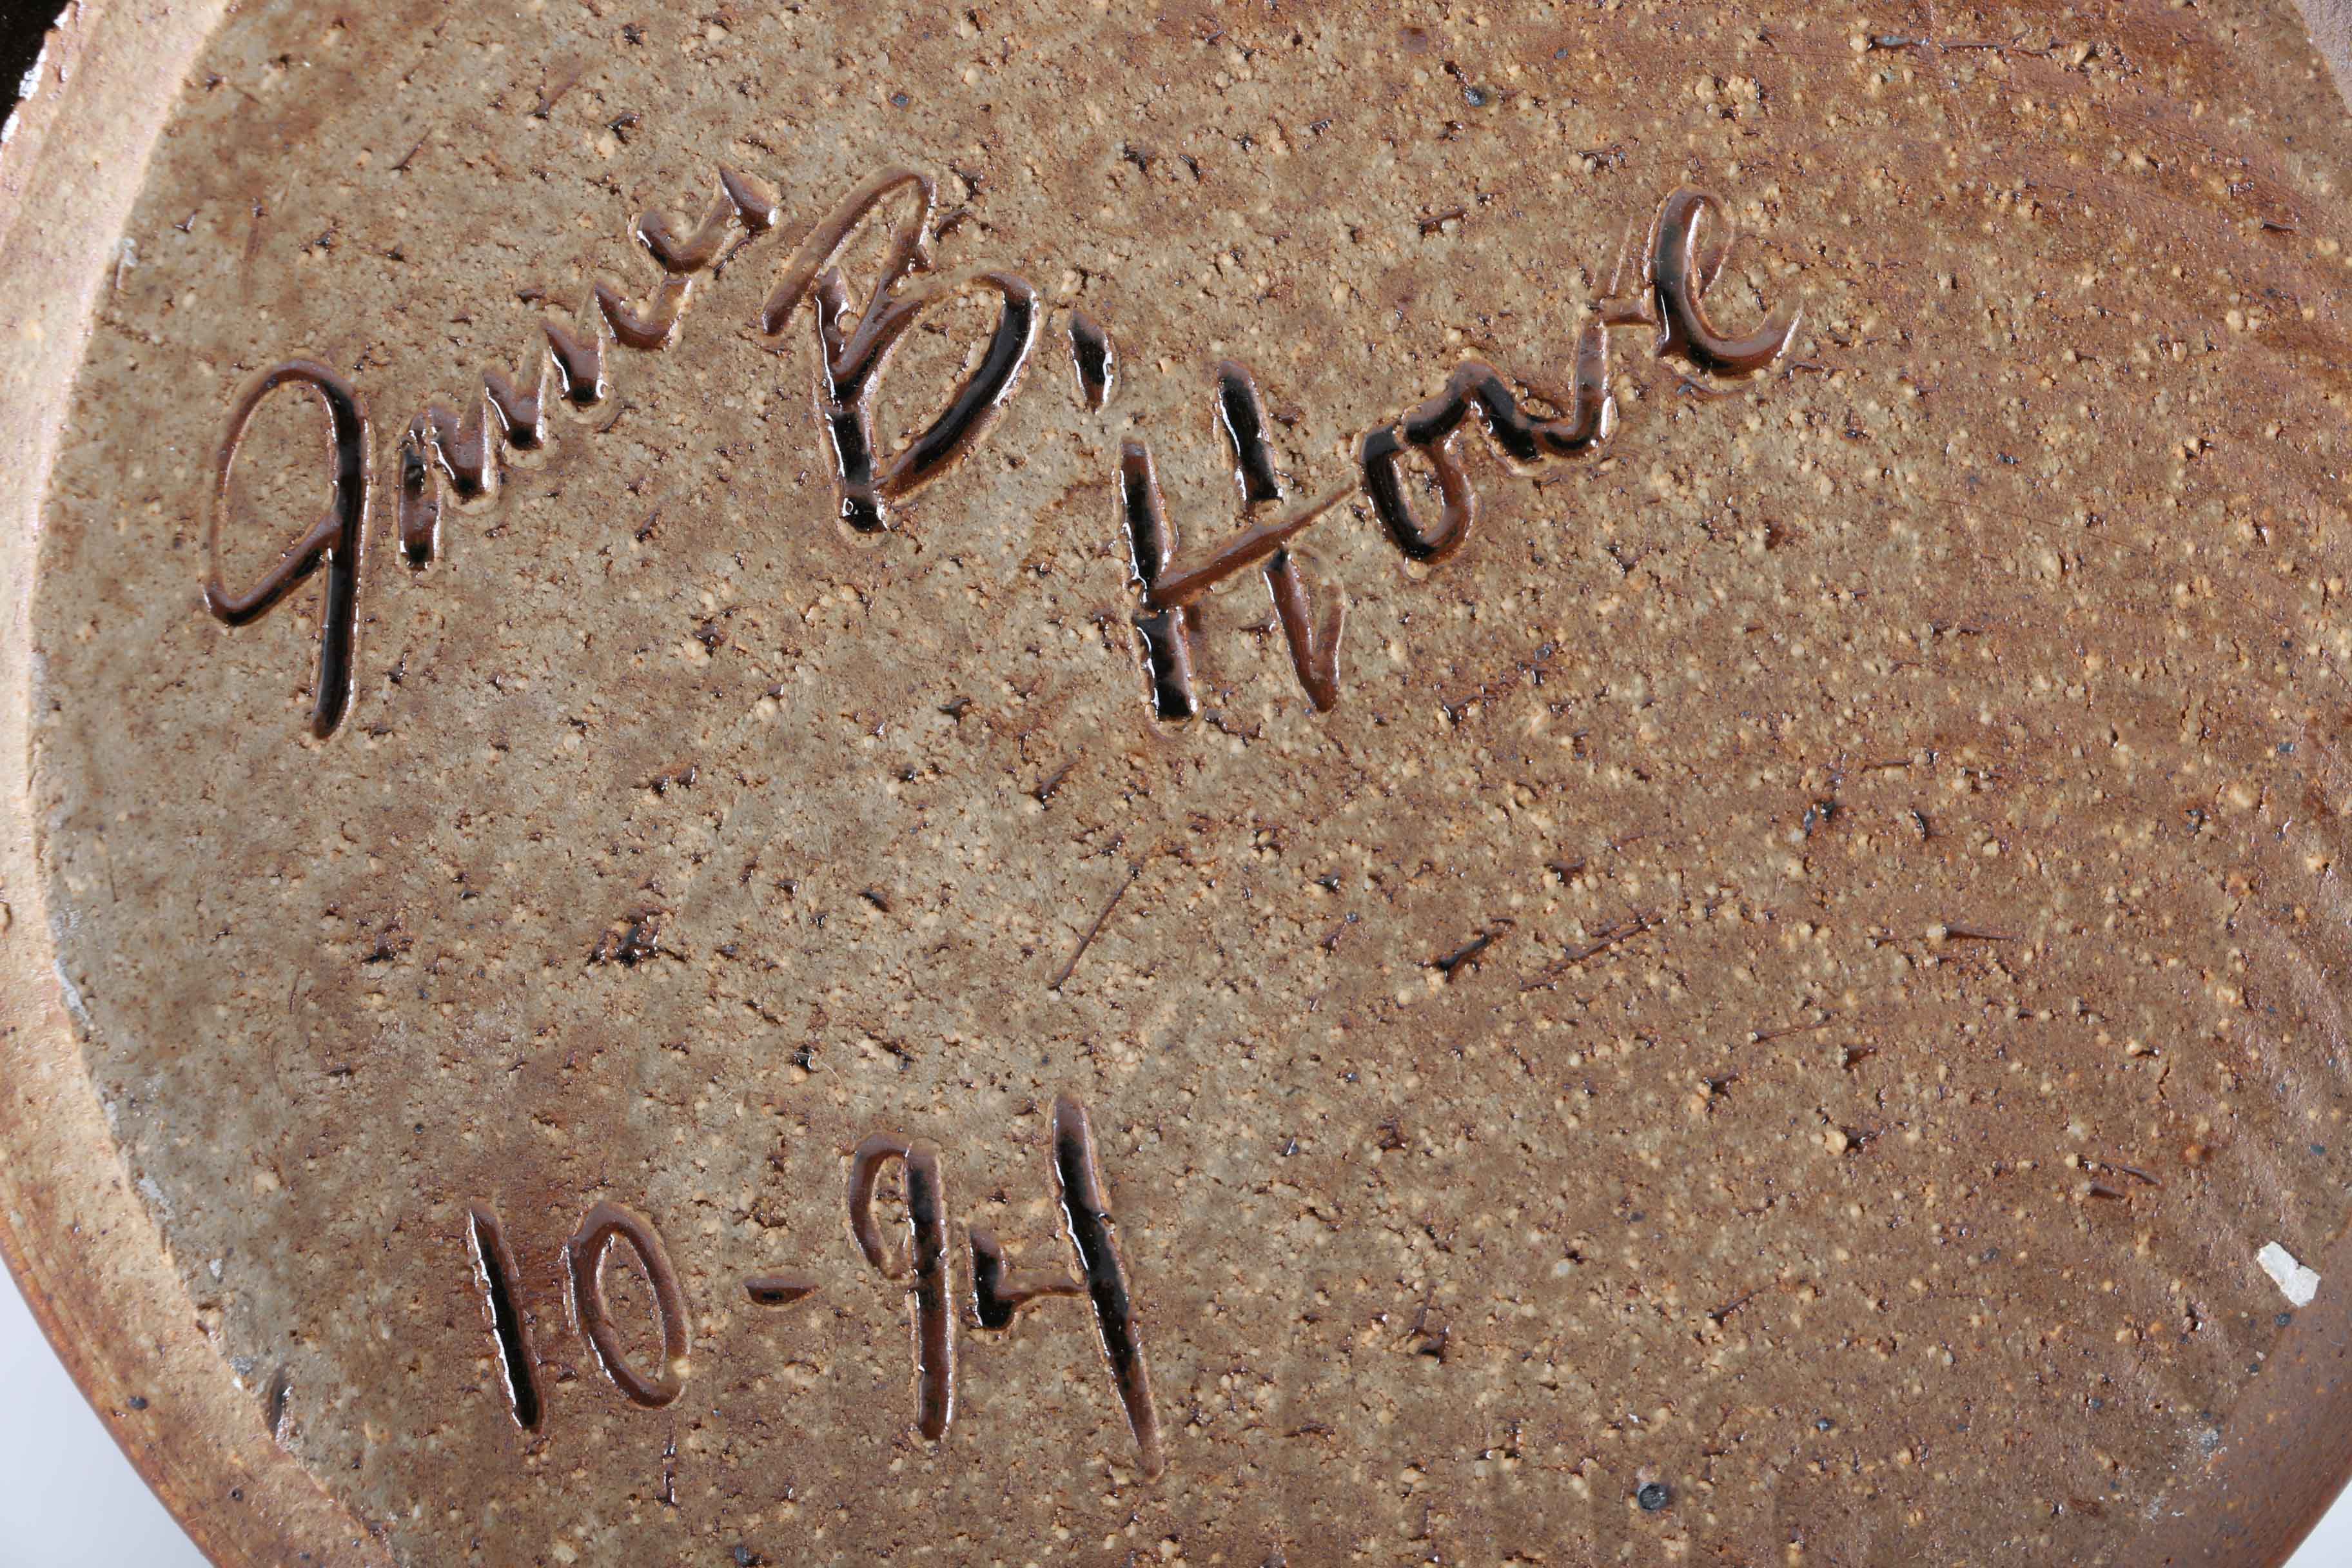 James B. Howe
10-94